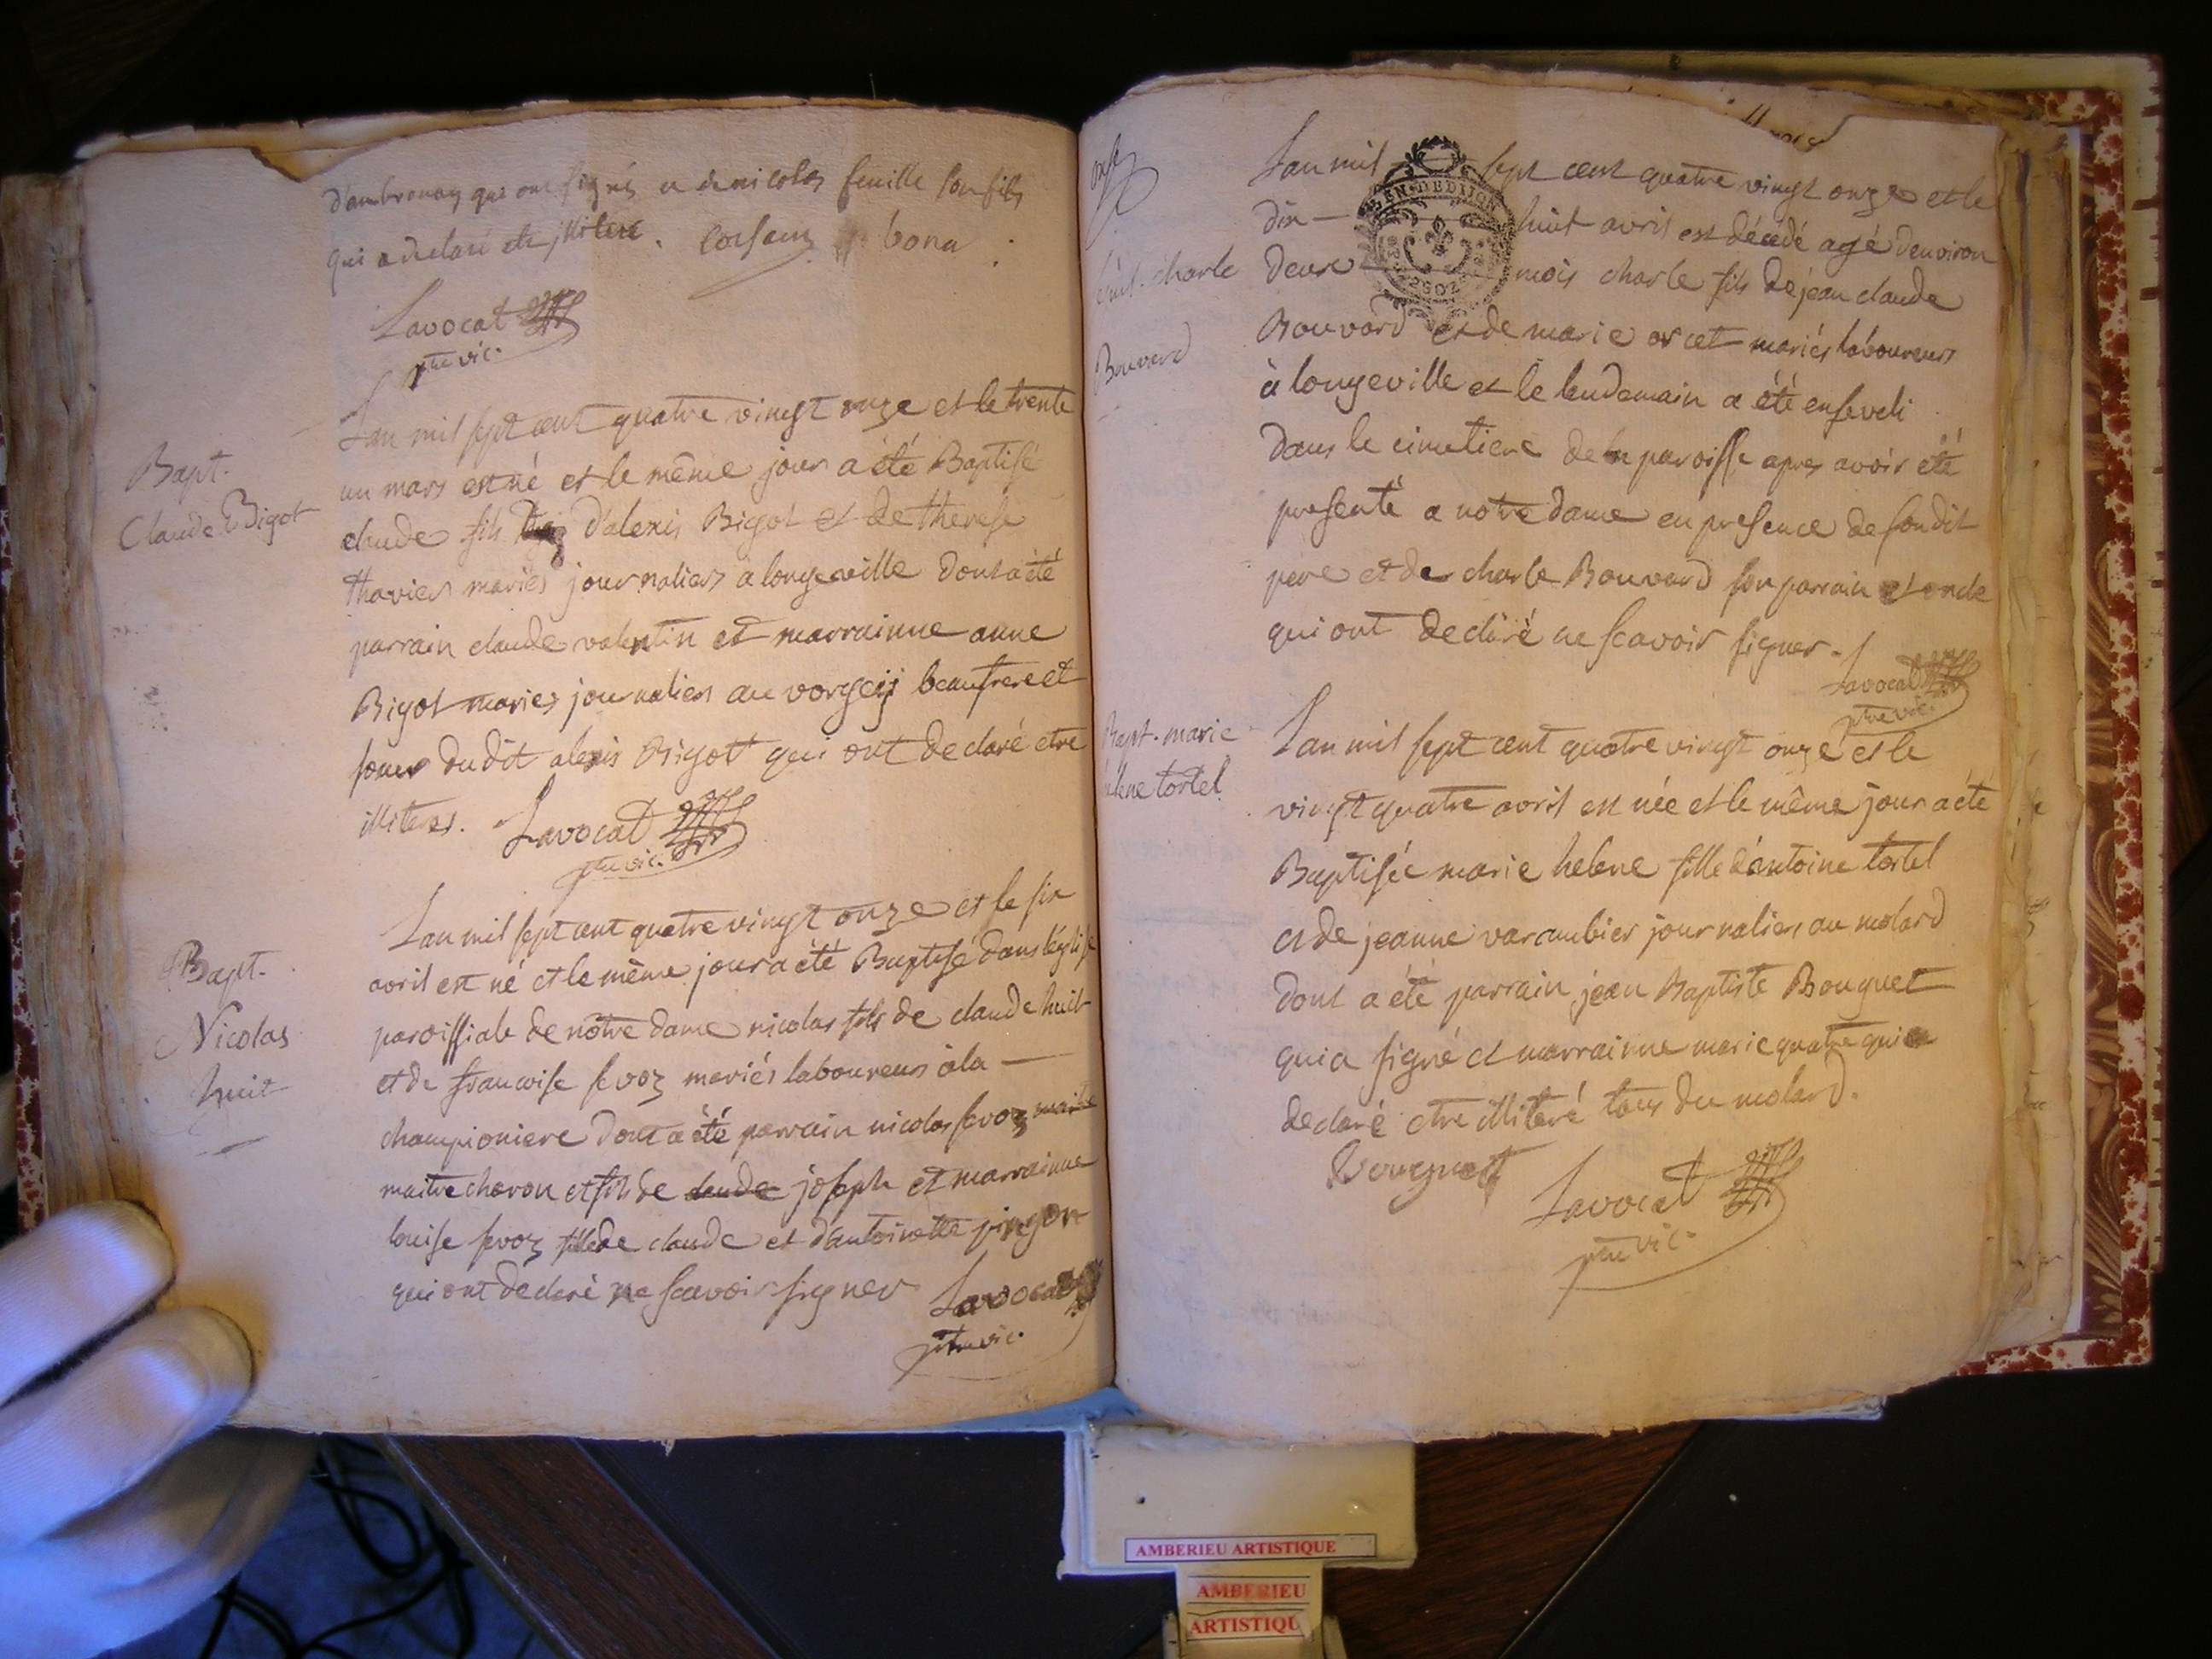 d'ambronay qui ont signés et de nicolas feuille son fils
qui a declaré etre illiteré. bona.
Lavocat
ptre vic.
Bapt.
Claude Bigot
L'an mil sept cent quatre vingt onze et le trente
un mars est né et le même jour a été Baptisé
claude fils d'alexis Bigot et de therese
thavier mariés journaliers a longeville dont a été
parrain claude valentin et marrainne anne
Bigot mariés journaliers au vorgey beaufrere et
soeur du dit alexis Bigot qui ont declaré etre
illiteres. Lavocat
ptre vic.
Bapt.
Nicolas
huit
L'an mil sept cent quatre vingt onze et le six
avril est né et le même jour a été Baptisé dans l'église
paroissiale de nôtre dame nicolas fils de claude huit
et de francoise sevoz mariés laboureurs à la
championiere dont a été parrain nicolas sevoz
maitre charon et fils de claude joseph et marrainne
louise sevoz fille de claude et d'antoinette pingon
qui ont declaré ne scavoir signer Lavocat
ptre vic.
onze
charle
Bouvard
L'an mil sept cent quatre vingt onze et le
dix huit avril est décedé agé d'environ
deux mois charle fils de jean claude
Bouvard et de marie orcet mariés laboureurs
à longeville et le lendemain a été enseveli
dans le cimetiere de la paroisse apres avoir été
presenté a notre dame en presence de son dit
pere et de charle Bouvard son parrain et oncle
qui ont declaré ne scavoir signer.
Lavocat
ptre vic.
Bapt. marie
helene tortel
L'an mil sept cent quatre vingt onze et le
vingt quatre avril est née et le même jour a été
Baptisée marie helene fille d'antoine tortel
et de jeanne varambier journaliers au molard
dont a été parrain jean Baptiste Bouguet
qui a signé et marrainne marie quatre qui a
declaré etre illiteré tous du molard.
Bouguet Lavocat
ptre vic.
AMBERIEU ARTISTIQUE
AMBERIEU
ARTISTIQU